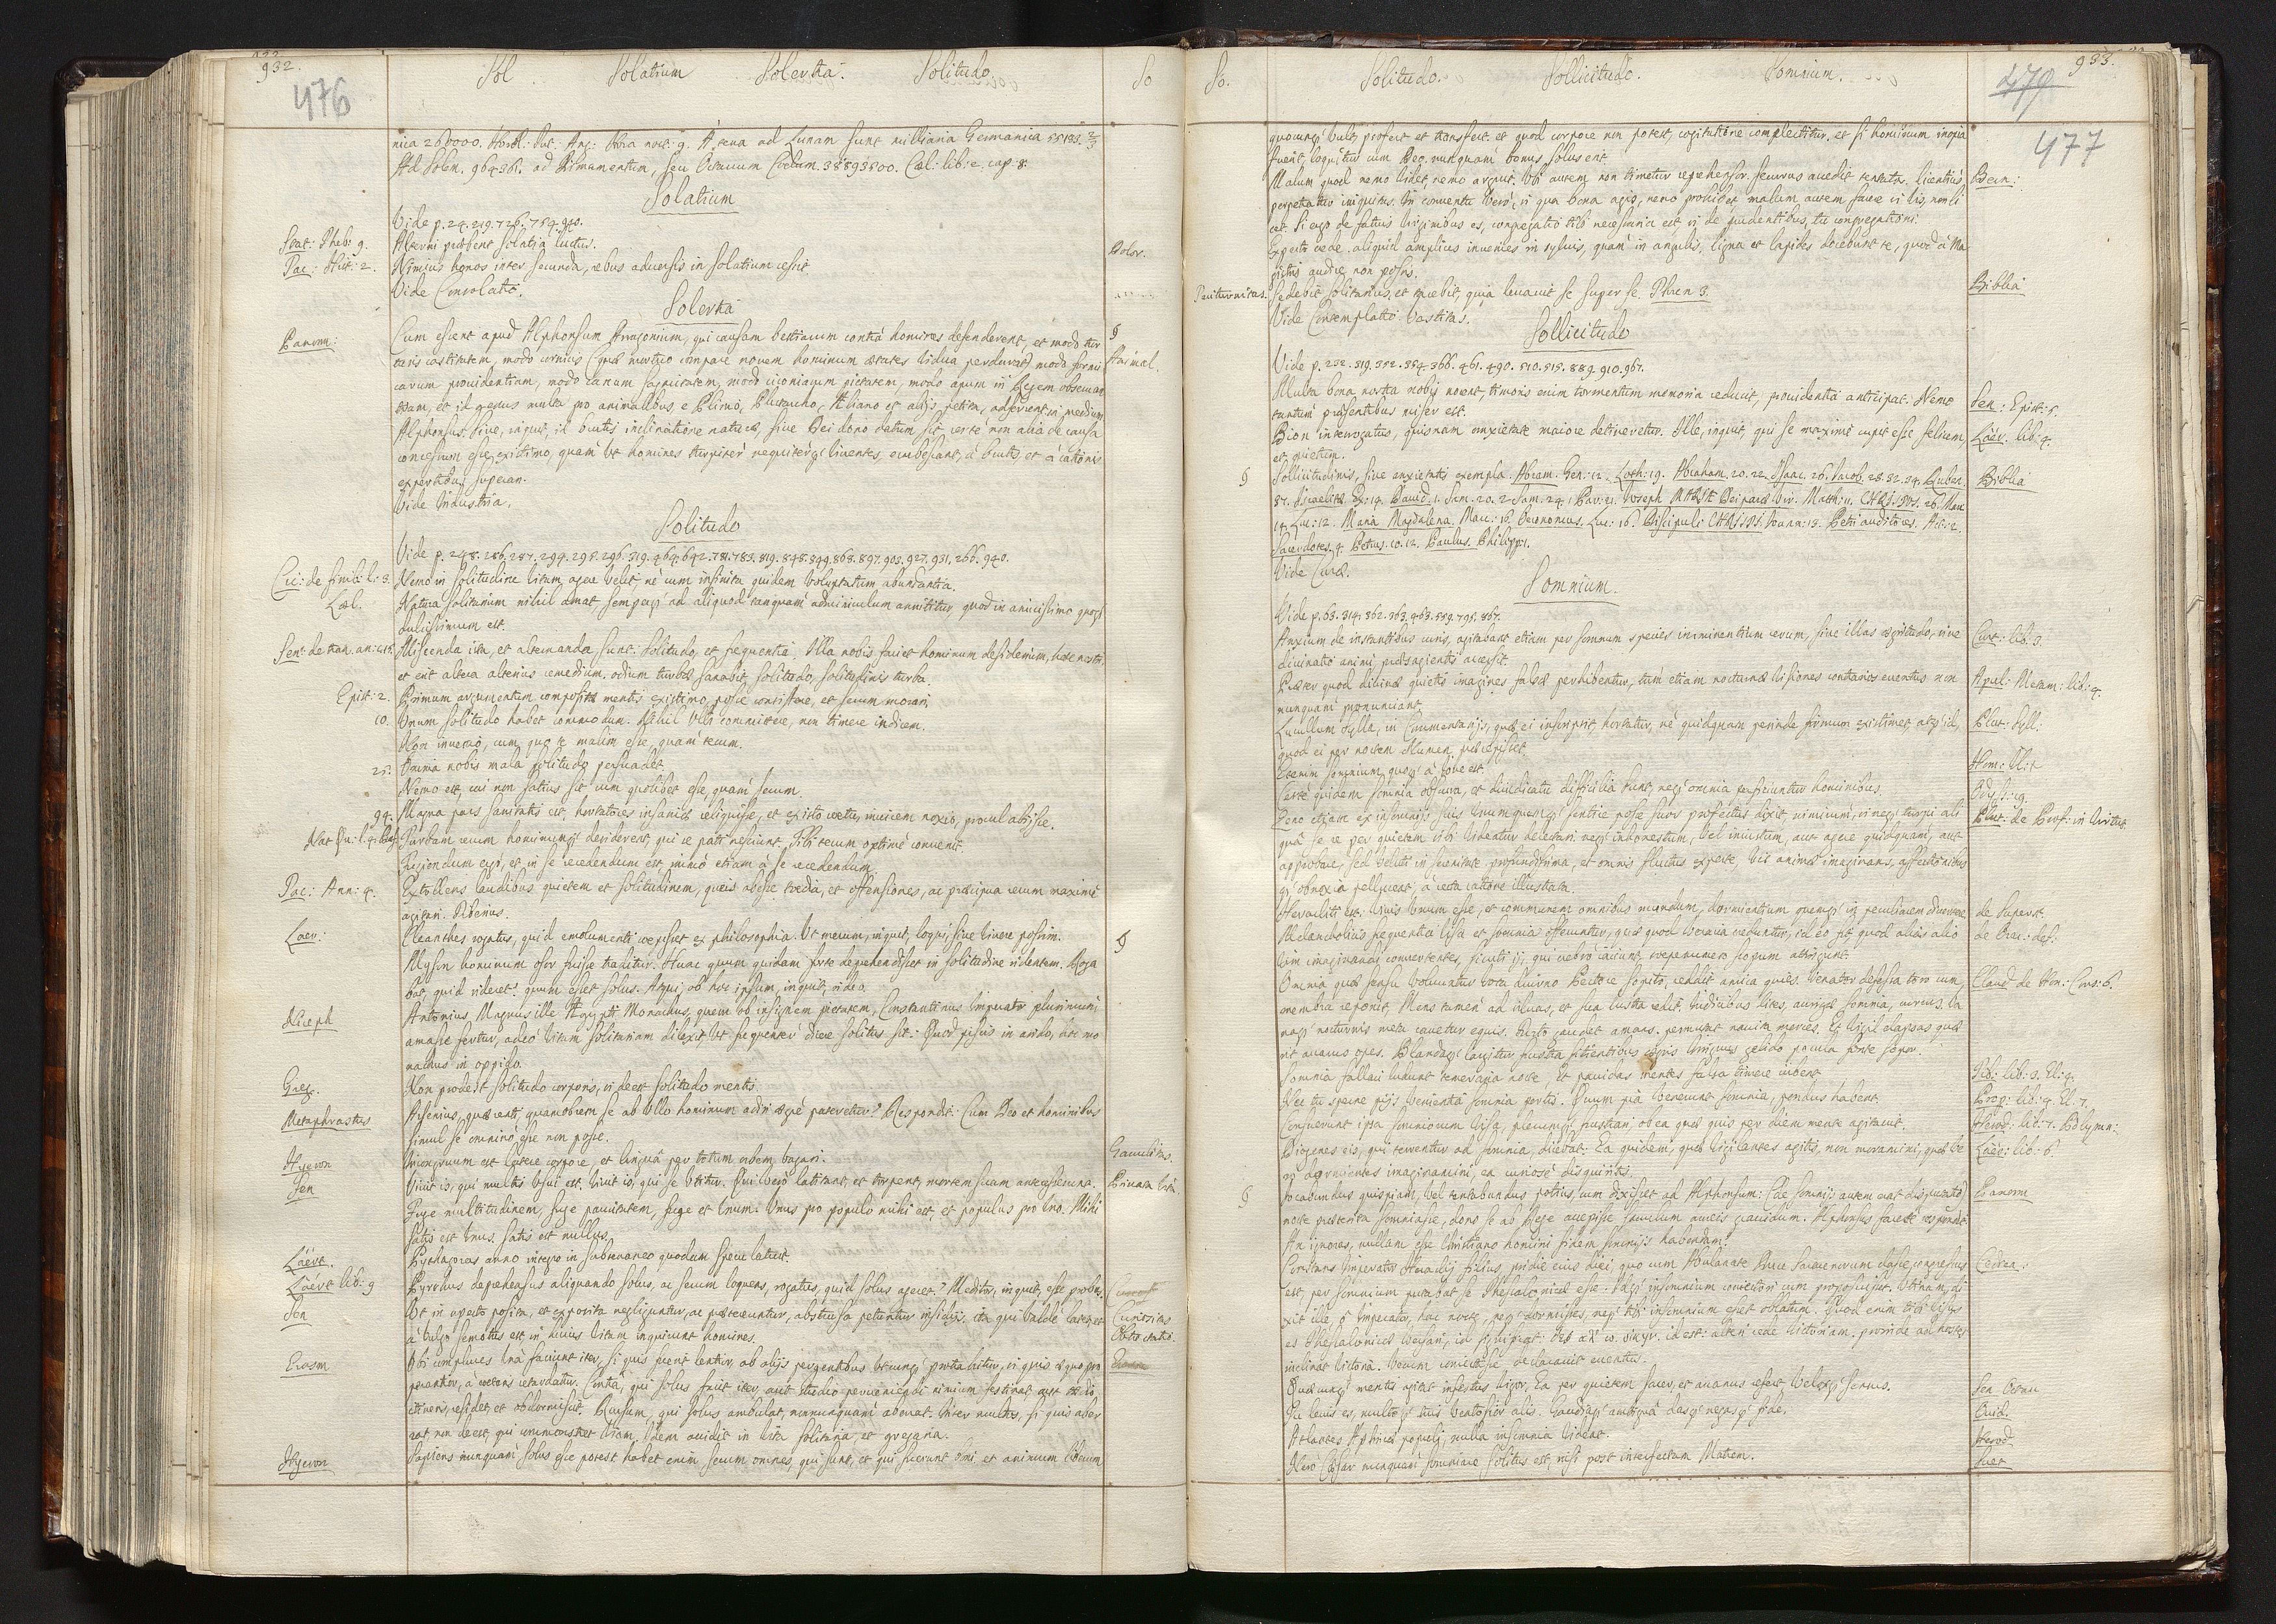 932.
Sol. Solatium Solertia. Solitudo. So
476
nica 260000. Ad Lunam sunt milliaria Germanica
Ad Solem. 964361. ad Firmamentum, seu Octavum Coelum. 38893800. Cael: lib: 2. cap: 8.
Solatium
Vide p. 24. 219. 726. 754. 940.
Stat: Theb: 9. Alterni praebent solatia luctus. Dolor.
Tac: Hist: 2. Nimius honos inter secunda, rebus adversis in solatium cessit
Vide Consolatio.
Solertia
Panorm: Cum essent apud Alphonsum Arragonium, qui causam bestiarum contra homines defenderent, et modo tur
turis castitatem, modo cornicis (quae mortuo compare novem hominum aetates vidua perdurat) modo formi Animal.
carum providentiam, modo canum sagacitatem, modo ciconiarum pietatem, modo apum in Regem observan
tiam, et id genus multa pro animalibus e Plinio, Plutarcho, Aeliano et alijs petita, adferrent in medium
Alphonsus. Sive, inquit, id brutis inclinatione naturae, sive Dei dono datum sit certe non alia de causa
concessum esse existimo, quàm ut homines turpiter nequiterq; viventes erubescant, à brutis et à rationis
expertibus superari.
Vide Industria.
Solitudo
Vide p. 248. 286. 287. 294. 295. 296. 319. 464. 642. 781. 783. 819. 848. 849. 868. 897. 903. 927. 931. 266. 940.
Cic: de finib: l: 3. Nemo in solitudine vitam agere velit, ne cum infinita quidem voluptatum abundantia.
Lael. Natura solitarium nihil amat, semperq; ad aliquod tanquam adminiculum annititur, quod in amicissimo quoq;
dulcissimum est.
Sen: de tran. an: c. 15. Miscenda ista, et alternanda sunt: solitudo, et frequentia. Illa nobis faciet hominum desiderium, haec nostri.
et erit altera alterius remedium. odium turbae sanabit solitudo, solitudinis turba.
Epist: 2. Primum argumentum compositae mentis existimo, posse consistere, et secum morari.
10. Unum solitudo habet commodum. Nihil ulli committere, non timere indicem.
Non invenio, cum quo te malim esse, quam tecum.
25. Omnia nobis mala solitudo persuadet.
Nemo est, cui non satius sit cum quolibet esse, quam secum.
94. Magna pars sanitatis est, hortatores insaniae reliquisse, et ex isto coetu, invicem noxio, procul abisse.
Fugiendum ergo, et in se recedendum est, immò etiam à se recedendum.
Tac: Ann: 4. Extollens laudibus quietem et solitudinem, queis abesse taedia, et offensiones, ac praecipua rerum maxime
agitari. Tiberius.
Laer: Cleanthes rogatus, quid emolumenti cepisset ex philosophia. Ut mecum, inquit, loqui, sive vivere possim.
Myson hominum osor fuisse traditur. Hunc quum quidam forte deprehendisset in solitudine ridentem. Roga
bat, quid rideret? quum esset solus. Atqui, ob hoc ipsum, inquit, rideo.
Niceph Antonius Magnus ille Aegypti Monachus, quem ob insignem pietatem, Constantinus Imperator plurimum
amasse fertur, adeo vitam solitariam dilexit ut frequenter dicere solitus sit: Quod piscis in arido, hoc mo
nachus in oppido.
Greg. Non prodest solitudo corporis, si deest solitudo mentis.
Metaphrastes Arsenius, quaerenti, quamobrem se ab ullo hominum adiri aegrè pateretur? Respondit: Cum Deo et hominibus
simul se omnino esse non posse.
Hyeron Incongruum est latere corpore, et lingua per totum orbem vagari. Garrulitas.
Sen Vivit is, qui multis usui est. vivit is, qui se utitur. Qui vero latitant, et torpent, mortem suam antecesserunt. Privata vita.
Fuge multitudinem, fuge paucitatem, fuge et unum. Unus pro populo mihi est, et populus pro uno. Mihi
satis est unus. satis est nullus.
Läert. Pythagoras anno integro in subterraneo quodam specu latuit.
Läert lib: 9 Pyrrhus deprehensus aliquando solus, ac secum loquens, rogatus, quid solus ageret? Meditor, inquit, esse probus.
Sen Ut in aperto posita, et exposita negliguntur, ac praetereuntur, abstrusa petuntur insidijs. ita qui valde latet et Curiositas
à vulgo semotus est, in huius vitam inquirunt homines. Obtrectatio.
Erasm Ubi complures unà faciunt iter, si quis fuerit lentior, ab alijs pergentibus utcunq; protrahitur, si quis aequo pro
perantior, a caeteris retardatur. Contra, qui solus facit iter, aut studio perveniendi nimium festinat, aut taedio
itineris, residet, et obdormiscit. Rursum, qui solus ambulat, nonnunquam aberrat. Inter multos, si quis aber
rat, non deest, qui commonstret viam. Idem accidit in vita solitaria, et gregaria.
Hyeron Sapiens nunquam solus esse potest habet enim secum omnes, qui sunt, et qui fuerunt boni, et animum liberum
933.
So. Solitudo. Sollicitudo. Somnium.
479
477
quocunq; vult, profert et transfert. et quod corpore non potest, cogitatione complectitur. et si hominum inopia
fuerit, loquitur cum Deo. nunquam bonus solus erit.
Malum quod nemo videt, nemo arguit. Ubi autem non timetur reprehensor. securus accedit tentator. licentius Bern:
perpetratur iniquitas. In conventu vero, si qua bona agis, nemo prohibet malum autem facere si vis, non li
cet. Si ergo de fatuis virginibus es, congregatio tibi necessaria est, si de prudentibus, tu congregationi.
Experto crede. aliquid amplius invenies in sylvis, quam in angulis, ligna et lapides docebunt te, quod à Ma
gistris audire non possis.
Taciturnitas. Sedebit solitarius, et tacebit, quia levavit se super se. Thren 3. Biblia
Vide Contemplatio. Vastitas.
Sollicitudo
Vide p. 232. 319. 352. 354. 366. 461. 490. 510. 515. 889. 910. 967.
Multa bona nostra nobis nocent, timoris enim tormentum memoria reducit, providentia anticipat. Nemo Sen: Epist: 5.
tantum praesentibus miser est.
Bion interrogatus, quisnam anxietate maiore detineretur. Ille, inquit, qui se maximè cupit esse felicem, Läer. lib: 4.
et quietum.
§ Sollicitudinis, sive anxietatis exempla. Abram. Gen: 12. Loth: 19. Abraham. 20. 22. Isaac. 26. Jacob. 28. 32. 34. Ruben. Biblia
37. Israelitae Ex: 14. David. 1. Sam. 20. 2 Sam. 24. 1 Par: 21. Joseph MARIAE Deiparae Vir. Matth: 1. CHRISTUS. 26. Mar:
14. Luc: 12. Maria Magdalena. Marc: 16. Oeconomus. Luc: 16. Discipuli CHRISTI. Joann: 13. Petri auditores. Act: 2.
Sacerdotes. 4. Petrus. 10. 12. Paulus. Philipp: 1.
Vide Cura.
Somnium.
Vide p. 63. 314. 362. 363. 463. 559. 795. 867.
Anxium de instantibus curis, agitabant etiam per somnum species imminentium rerum, sive illas aegritudo, sive Curt: lib: 3.
divinatio animi praesagientis accersit.
Praeter quod diurnae quietis imagines falsae perhibentur, tum etiam nocturnae visiones contrarios eventus non Apul: Metam: lib: 4.
nunquam pronunciant.
Lucullum Sylla, in Commentarijs, quos ei inscripsit, hortatur, ne quidquam perinde firmum existimet, atq; id, Plut: Syll:
quod ei per noctem Numen praecepisset.
Etenim somnium quoq; à Jove est. Hom: Il: 1
Certè quidem somnia obscura, et dijudicatu difficilia sunt, neq; omnia perficiuntur hominibus. Odyss: 19.
Zeno etiam ex insomnijs suis unumquemq; sentire posse suos profectus dixit, nimirum, si neq; turpi ali Plut: de Prof: in Virtut.
qua se re per quietem sibi videatur delectari neq; inhonestum, vel iniustum, aut agere quidquam, aut
approbare, sed veluti in serenitate profundissima, et omnis fluctus experte, vis animae imaginans, affectionibus
q; obnoxia pelluceat, à recta ratione illustrata.
Heracliti est: vivis unum esse, et communem omnibus mundum, dormientium quemq; in peculiarem divertere. de Superst:
Melancholicis frequentia visa et somnia offeruntur, quae quod veracia creduntur, id eo fit, quod alias alio de Orac: def:
tim imaginandi convertentes, sicuti ij, qui crebro iaciunt, crepenumero scopum attingunt.
Omnia quae sensu volvuntur vota diurno Pectore sopito, reddit amica quies. Venator defessa toro cum Claud de Hon: Cons: 6.
membra reponit, Mens tamen ad sylvas, et sua lustra redit. Iudicibus lites, aurigae somnia, currus, Va
naq; nocturnis meta cavetur equis. Furto gaudet amans. permutat navita merces. Et vigil elapsas quae
rit avarus opes. Blandaq; largitur frustra sitientibus aegris Irriguus gelido pocula fonte sopor.
Somnia fallaci ludunt temeraria nocte, Et pavidas mentes falsa timere iubent Tib: lib: 3. El: 4.
Nec tu sperne pijs venientia somnia portis. Quum pia venerunt somnia, pondus habent. Prop: lib: 4. El: 7.
Consuerunt ipsa somniorum visa, plerunq; frustrari, ob ea quae quis per diem mente agitavit. Herod: lib: 7. Polymn:
Diogenes eis, qui terrentur ad somnia, dicebat: Ea quidem, quae vigilantes agitis, non moramini, quae ve
rò dormientes imaginamini, ea curiosè disquiritis. Läer: lib: 6.
§ Jocabundus quispiam, vel tentabundus potius, cum dixisset ad Alphonsum: (de somnijs autem erat disputatio) Panorm
nocte praeterita somniasse, dono se ab Rege accepisse sacculum aureis gravidum. Alphonsus facetè respondit:
An ignoras, nullam esse Christiano homini fidem somnijs habendam?
Constans Imperator Heraclij filius, pridie eius diei, quo cum Abulanare Duce Saracenorum classe congressus Cedren:
est, per somnium putabat se Thessalonicae esse. Idq; insomnium coniectori cum proposuisset. Utinam, di
xit ille, ô Imperator, hac nocte, neq; dormisses, neq; tibi insomnium esset oblatum. Quod enim tibi visus
es Thessalonicae versari, id significat: id est: alteri cede victoriam. proinde ad hostes
inclinat victoria. Verum coniecisse, declaravit eventus.
Quaecunq; mentis agitat infestus vigor, Ea per quietem sacer, et arcanus refert Veloxq; sensus. Sen Octav
Tu levis es, multoq; tuis ventosior alis. Gaudiaq; ambiguâ dasq; negasq; fide. Ovid.
Atlantes Aphricae populi, nulla insomnia vident. Herod
Nero Caesar nunquam somniare solitus est, nisi post interfectam Matrem. Suet